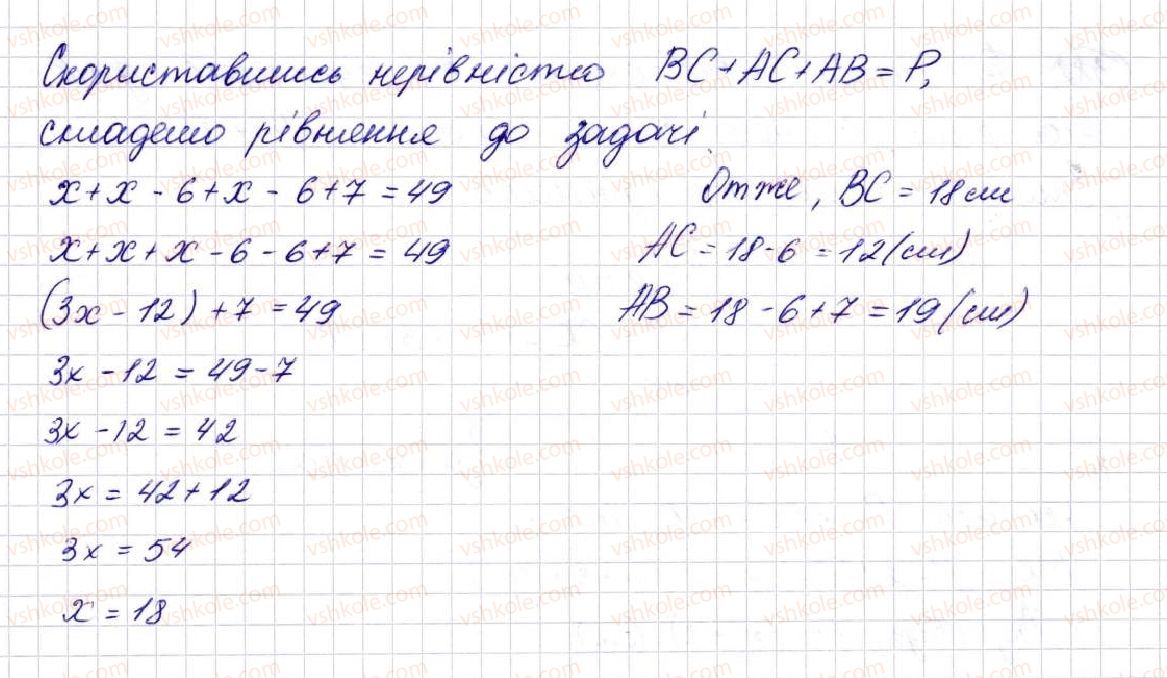 Скориставшись нерівністю BC+AC+AB=P,
складемо рівняння до задачі.
x+x-6+x-6+7=49
x+x+x-6-6+7=49
(3x-12)+7=49
3x-12=49-7
3x-12=42
3x=42+12
3x=54
x=18
Отже, BC=18см
AC=18-6=12(см)
AB=18-6+7=19(см)
vshkole.com